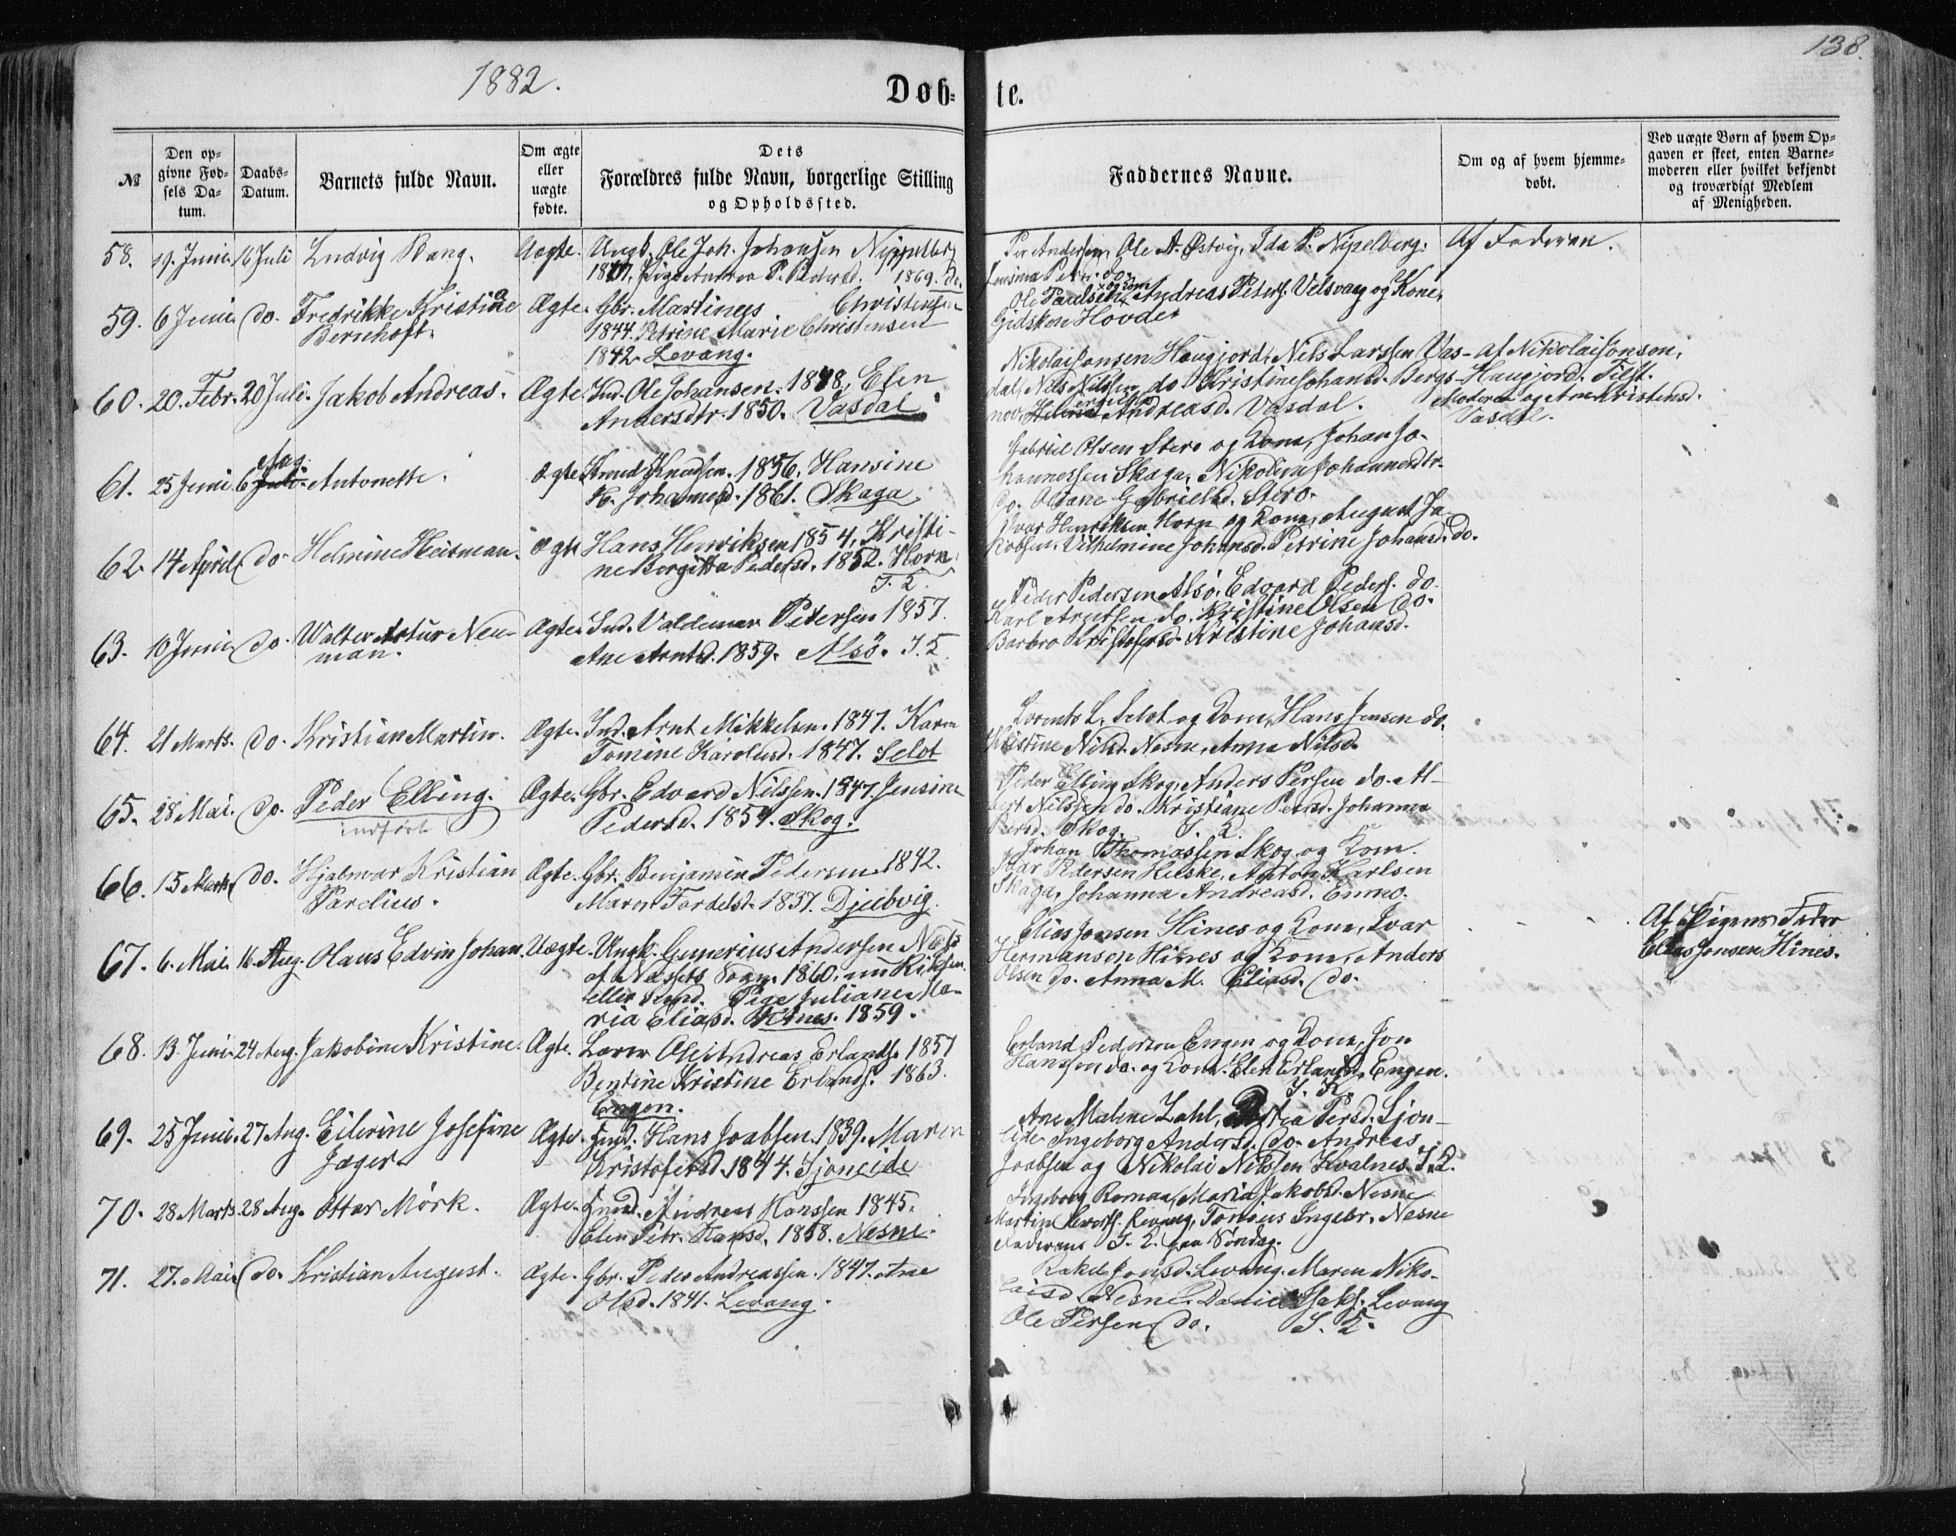 1882.
138.
Døb-
te.
№
Den op-
givne Fød-
sels Da-
tum.
Daabs-
Datum.
Barnets fulde Navn.
Om ægte
eller
uægte
fødte.
Dets
Forældres fulde Navn, borgerlige Stilling
og Opholdssted.
Faddernes Navne.
Om og af hvem hjemme-
døbt.
Ved uægte Børn af hvem Op-
gaven er skeet, enten Barne-
moderen eller hvilket bekjendt
og troværdigt Medlem
af Menigheden.
58. 19 Juni 16 Juli Ludvig Bang. Uægte. Ungk. Ole Joh. Johansen Nippelberg
Pige Andrea P. Pedersd. 1869. do.
Per Andersen, Ole A. Østvig, Ida P. Nipelberg.
Af Faderen.
59. 6 Juni do. Fredrikke Kristine
Bernhoft.
Ægte. Gbr. Martinus Christensen
1844. Petrine Marie Christensen
1842. Levang.
Ole Paulsen Andreas Peters. Velsvaag og Kone,
Gidsken Hovde.
60. 20. Febr. 20 Juli. Jakob Andreas. Ægte. Ind. Ole Johansen. 1848, Elen
Andersdtr. 1850. Vasdal.
Nikolai Jonsen Haugjord, Nils Larssen Vas-
dal, Nils Nilssen do Kristine Johansd. Bergs-
nov, Andreasd. Vasdal.
Af Nikolai Jonsen,
Haugjord. Tilst.
Moderen og Ane Kristensd.
Vasdal.
61. 25 Juni 6 Aug. Antonette. Ægte. Knud Knudsen. 1856, Hansine
K. Johannesd. 1861. Skaga.
Gabriel Olsen Stero og Kone, Johan Jo-
hannessen Skaga, Nikoline Johannesdtr.
do. Oldane Gabrielsd. Stero.
62. 14 April do. Helmine Heitman. Ægte Hans Henriksen 1854, Kristi-
ne Borgitta Pedersd. 1852. Horn
I. K.
Ivar Henriksen Horn og Kone, August Ja-
kobsen, Vilhelmine Johansd. Petrine Johansd. do.
63. 10 Juni do. Walter Artur Neu-
man.
Ægte. Ind. Valdemar Petersen 1857.
Ane Arntsd. 1859. Alsø. I. K.
Peder Pedersen Alsø, Edvard Peders. do.
Karl Arntsen do. Kristine Olsen do.
Barbro Kristofersd. Kristine Johansd.
64. 21 Marts. do. Kristian Martin. Ægte. Ind. Arnt Mikkelsen. 1847. Karen
Tomine Karolusd. 1847. Selot
Lorents L. Selot og Kone, Hans Jensen do.
Kristine Nilsd. Nesne, Anna Nilsd.
65. 28 Mai. do. Peder Elling. Ægte. Gbr. Edvard Nilssen. 1847. Jensine
indført
Pedersd. 1854. Skog.
Peder Elling Skog, Anders Persen do. Al-
bert Nilssen do. Kristiane Persd. Johanna
Persd. Skog. I. K.
66. 15 Marts do. Hjalmar Kristian
Parelius.
Ægte. Gbr. Benjamin Pedersen 1842.
Maren Tordelsd. 1837. Djubvig.
Johan Thomassen Skog og Kone.
Ivar Pedersen Huske, Anton Karlsen
Skaga, Johanna Andreasd. Enmo.
67. 6. Mai. 16. Aug. Olaus Edvin Johan. Uægte. Ungk. Gunerius Andersen Næss
af Næssets Sogn. 1860,
eller Pige Juliane Ma-
ria Eliasd. Hines. 1859.
Elias Jonsen Hines og Kone, Ivar
Hermansen Hines og Kone, Anders
Olsen do. Anna M. Eliasd. do.
Af Pigens Fader
Elias Jonsen Hines.
68. 13. Juni. 24 Aug. Jakobine Kristine. Ægte. Lærer Ole Andreas Erlands. 1857
Bentine Kristine Erlands. 1863.
Engen.
Erland Pedersen Engen og Kone, Jon
Hanssen do. og Kone. Elen Erlandsd. Engen.
I. K.
69. 25 Juni. 27 Aug. Eilerine Josefine
Jæger
Ægte. Ind. Hans Joabsen. 1839. Maren
Kristofersd. 1844. Sjoneide
Ane Malene Zahl, Persd. Sjon-
eide Ingeborg Andersd. do. Andreas
Joabsen og Nikolai Nilssen Kvalnes. I. K.
70. 28 Marts. 28 Aug. Ottar Mörk. Ægte. Ind. Andreas Hanssen 1845.
Elen Petr. Hansd. 1858. Nesne.
Ingeborg Romaa, Maria Jakobsd. Nesne
Martin Levang, Tomas Ingebr. Nesne
Faderen I. K. paa Søndag.
71. 27. Mai. do. Kristian August. Ægte. Gbr. Peder Andreassen. 1847. Ane
Olsd. 1841. Levang.
Rakel Jonsd. Levang. Maren Niko-
laisd. Nesne. Daniel Isaks. Levang
Ole Persen do. I. K.